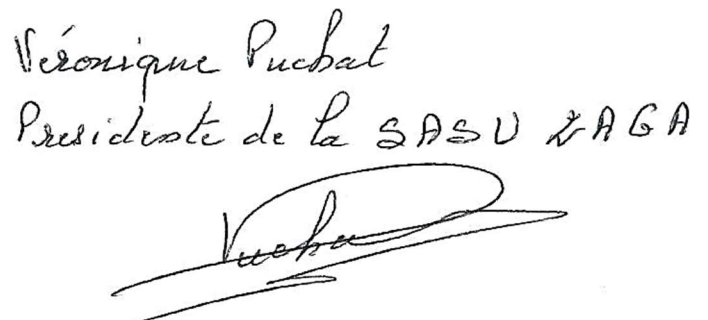 Véronique Puchat
Presidente de la SASU ZAGA
Puchat